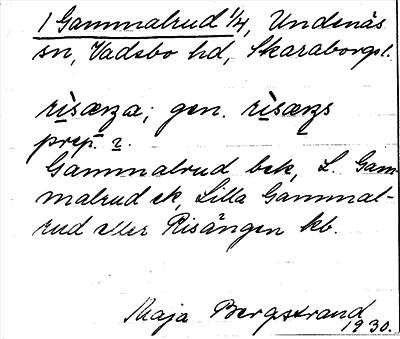 1 Gammalrud 1/4, Undenäs
sn, Vadsbo hd, Skaraborgsl.
rìsæŋa; gen. rìsæŋs
prep. i.
Gammalrud bek, L. Gam-
malrud ek, Lilla Gammal-
rud eller Risängen kb.
Maja Bergstrand
1930.